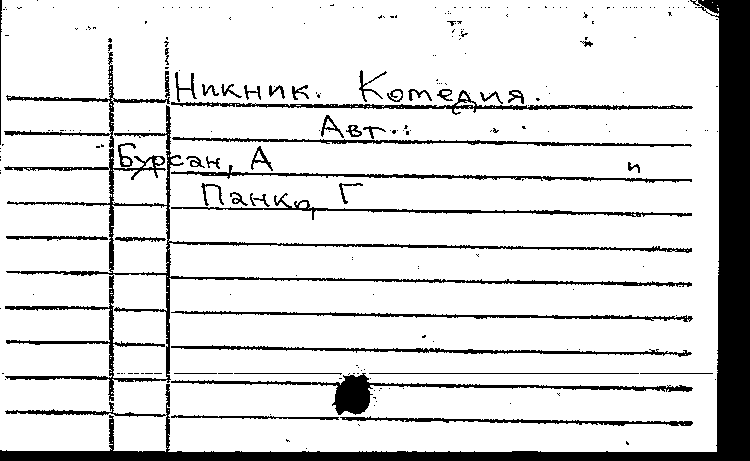 Никник. Комедия.
Авт.:
Бурсан, А п
Панко, Г